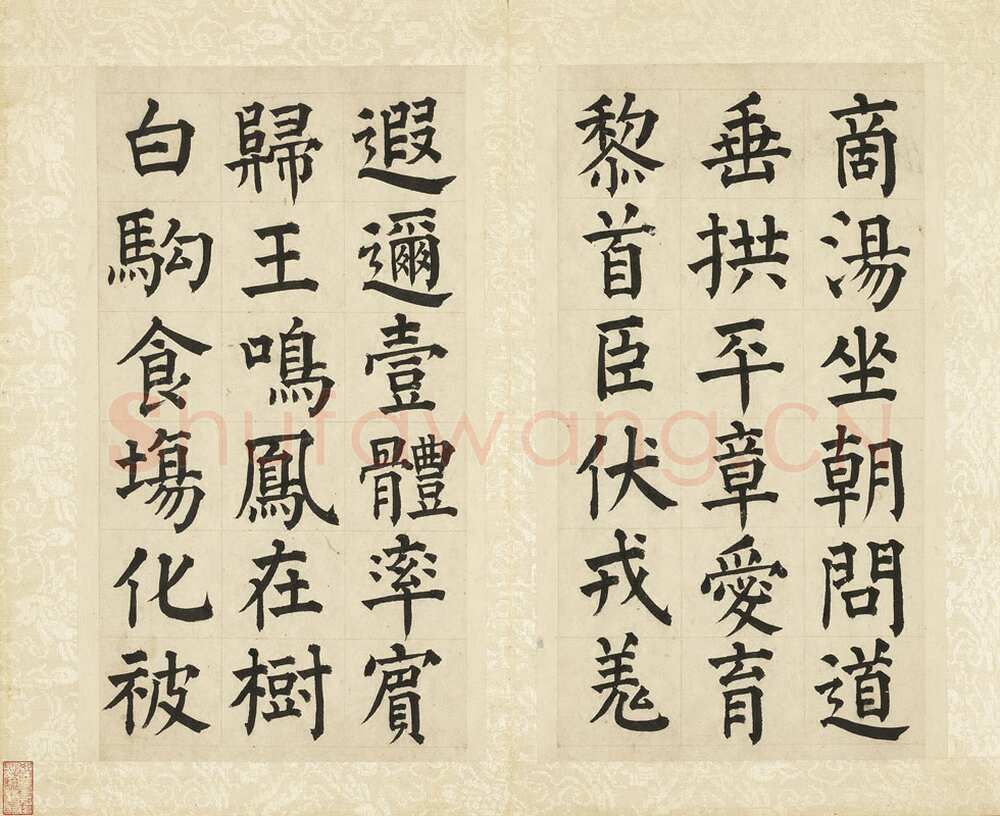 商湯坐朝問道
垂拱平章愛育
黎首臣伏戎羌
遐邇壹體率賓
歸王鳴鳳在樹
白駒食場化被
Shufawang.CN